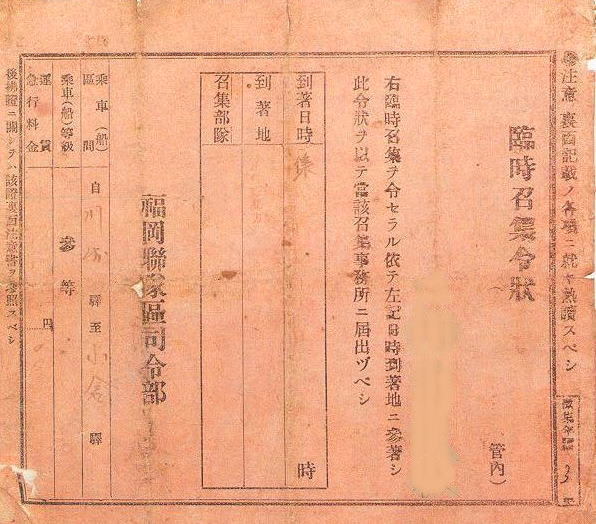 注意 裏面記載ノ各項ニ就キ熟讀スベシ
臨時召集令狀
管內)
右臨時召集ヲ令セラル依テ左記日時到著地ニ參著シ
此令狀ヲ以テ當該召集事務所ニ屆出ヅベシ
到著日時
時
到著地
召集部隊
福岡聯隊區司令部
乘車(船)區間 自 驛至小倉驛
乘車(船)等級 參等
運賃
急行料金
圓
後拂證ニ關シテハ該證裏面注意書ヲ參照スベシ